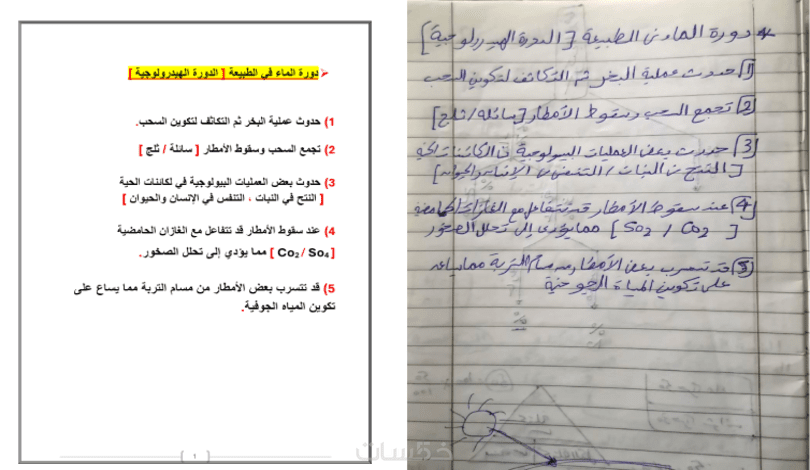 دورة الماء في الطبيعة [ الدورة الهيدرولوجية ]
1) حدوث عملية البخر ثم التكاثف لتكوين السحب.
2) تجمع السحب وسقوط الأمطار [ سائلة / ثلج ]
3) حدوث بعض العمليات البيولوجية في لكائنات الحية
[ النتح في النبات ، التنفس في الإنسان والحيوان ]
4) عند سقوط الأمطار قد تتفاعل مع الغازان الحامضية
[ Co2 / So4 ] مما يؤدي إلى تحلل الصخور.
5) قد تتسرب بعض الأمطار من مسام التربة مما يساع على
تكوين المياه الجوفية.
[ ١ ]
* دورة الماء فى الطبيعة [الدورة الهيدرولوجية]
1) حدوث عملية البخر ثم التكاثف لتكوين السحب
2) تجمع السحب وسقوط الأمطار [سائلة / ثلج]
3) حدوث بعض العمليات البيولوجية فى الكائنات الحية
[النتح فى النبات / التنفس فى الإنسان والحيوان]
4) عند سقوط الأمطار قد تتفاعل مع الغازات الحامضية
[So2 / Co2] مما يؤدى إلى تحلل الصخور
5) قد تتسرب بعض الأمطار من مسام التربة مما يساعد
على تكوين المياة الجوفية
خمسات